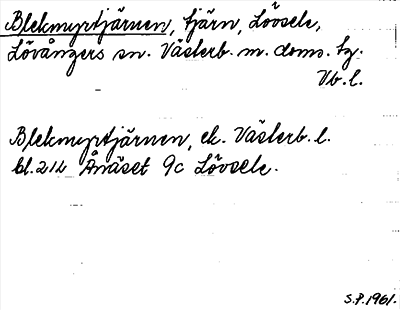 Blekmyrtjärnen, tjärn, Lövsele,
Lövångers sn. Västerb. m. doms. tg.
Vb. l.
Blekmyrtjärnen, ek. Västerb. l.
bl. 212 Ånäset 9c Lövsele.
S.P. 1961.